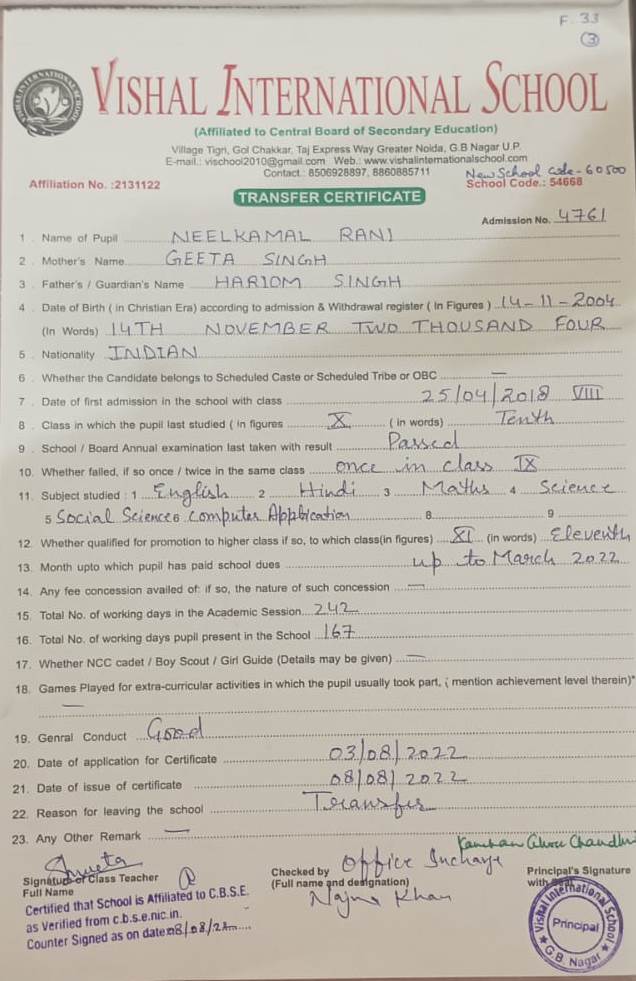 F. 33
3
VISHAL INTERNATIONAL SCHOOL
(Affiliated to Central Board of Secondary Education)
Village Tigri, Gol Chakkar, Taj Express Way Greater Noida, G.B Nagar U.P.
E-mail.: vischool2010@gmail.com Web.: www.vishalinternationalschool.com
Contact.: 8506928897, 8860885711
New School Code - 60500
Affiliation No. :2131122
School Code.: 54668
TRANSFER CERTIFICATE
Admission No. 4761
1 . Name of Pupil NEELKAMAL RANI
2 . Mother's Name GEETA SINGH
3 . Father's / Guardian's Name HARIOM SINGH
4 . Date of Birth ( in Christian Era) according to admission & Withdrawal register ( In Figures ) 14-11-2004
(In Words) 14TH NOVEMBER TWO THOUSAND FOUR
5 . Nationality INDIAN
6 . Whether the Candidate belongs to Scheduled Caste or Scheduled Tribe or OBC —
7 . Date of first admission in the school with class 25/04/2018 VIII
8 . Class in which the pupil last studied ( in figures X ( in words) Tenth
9 . School / Board Annual examination last taken with result Passed
10. Whether failed, if so once / twice in the same class once in class IX
11. Subject studied : 1 English 2 Hindi 3 Maths 4 Science
5 Social Science 6 Computer Application 8 9
12. Whether qualified for promotion to higher class if so, to which class(in figures) XI (in words) Eleventh
13. Month upto which pupil has paid school dues up to March 2022
14. Any fee concession availed of: if so, the nature of such concession —
15. Total No. of working days in the Academic Session 242
16. Total No. of working days pupil present in the School 167
17. Whether NCC cadet / Boy Scout / Girl Guide (Details may be given) —
18. Games Played for extra-curricular activities in which the pupil usually took part, ( mention achievement level therein)*
—
19. Genral Conduct Good
20. Date of application for Certificate 03/08/2022
21. Date of issue of certificate 08/08/2022
22. Reason for leaving the school Transfer
23. Any Other Remark —
Shweta
Signature of Class Teacher
Full Name
Checked by Office Incharge
(Full name and designation)
Najma Khan
Principal's Signature
with Seal
Certified that School is Affiliated to C.B.S.E.
as Verified from c.b.s.e.nic.in.
Counter Signed as on date
Vishal International School
Principal
G.B. Nagar